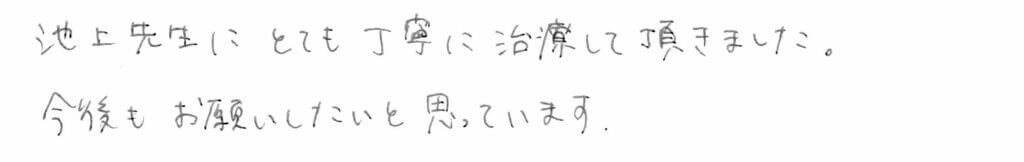 池上先生に とても 丁寧に 治療して 頂きました。
今後も お願いしたいと 思っています.